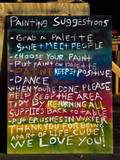 PAINTING SUGGESTIONS
- GRAB A PALETTE
- SMILE + MEET PEOPLE
- CHOOSE YOUR PAINT
- PUT PAINT ON PALETTE
- PAINT KEEP IT POSITIVE
- DANCE
WHEN YOU'RE DONE, PLEASE
HELP KEEP THE AREA
TIDY BY RETURNING ALL
SUPPLIES BACK TO TABLE
+ PUT BRUSHES IN WATER
THANK YOU FOR BEING
A PART OF THE CUBE
WE LOVE YOU!